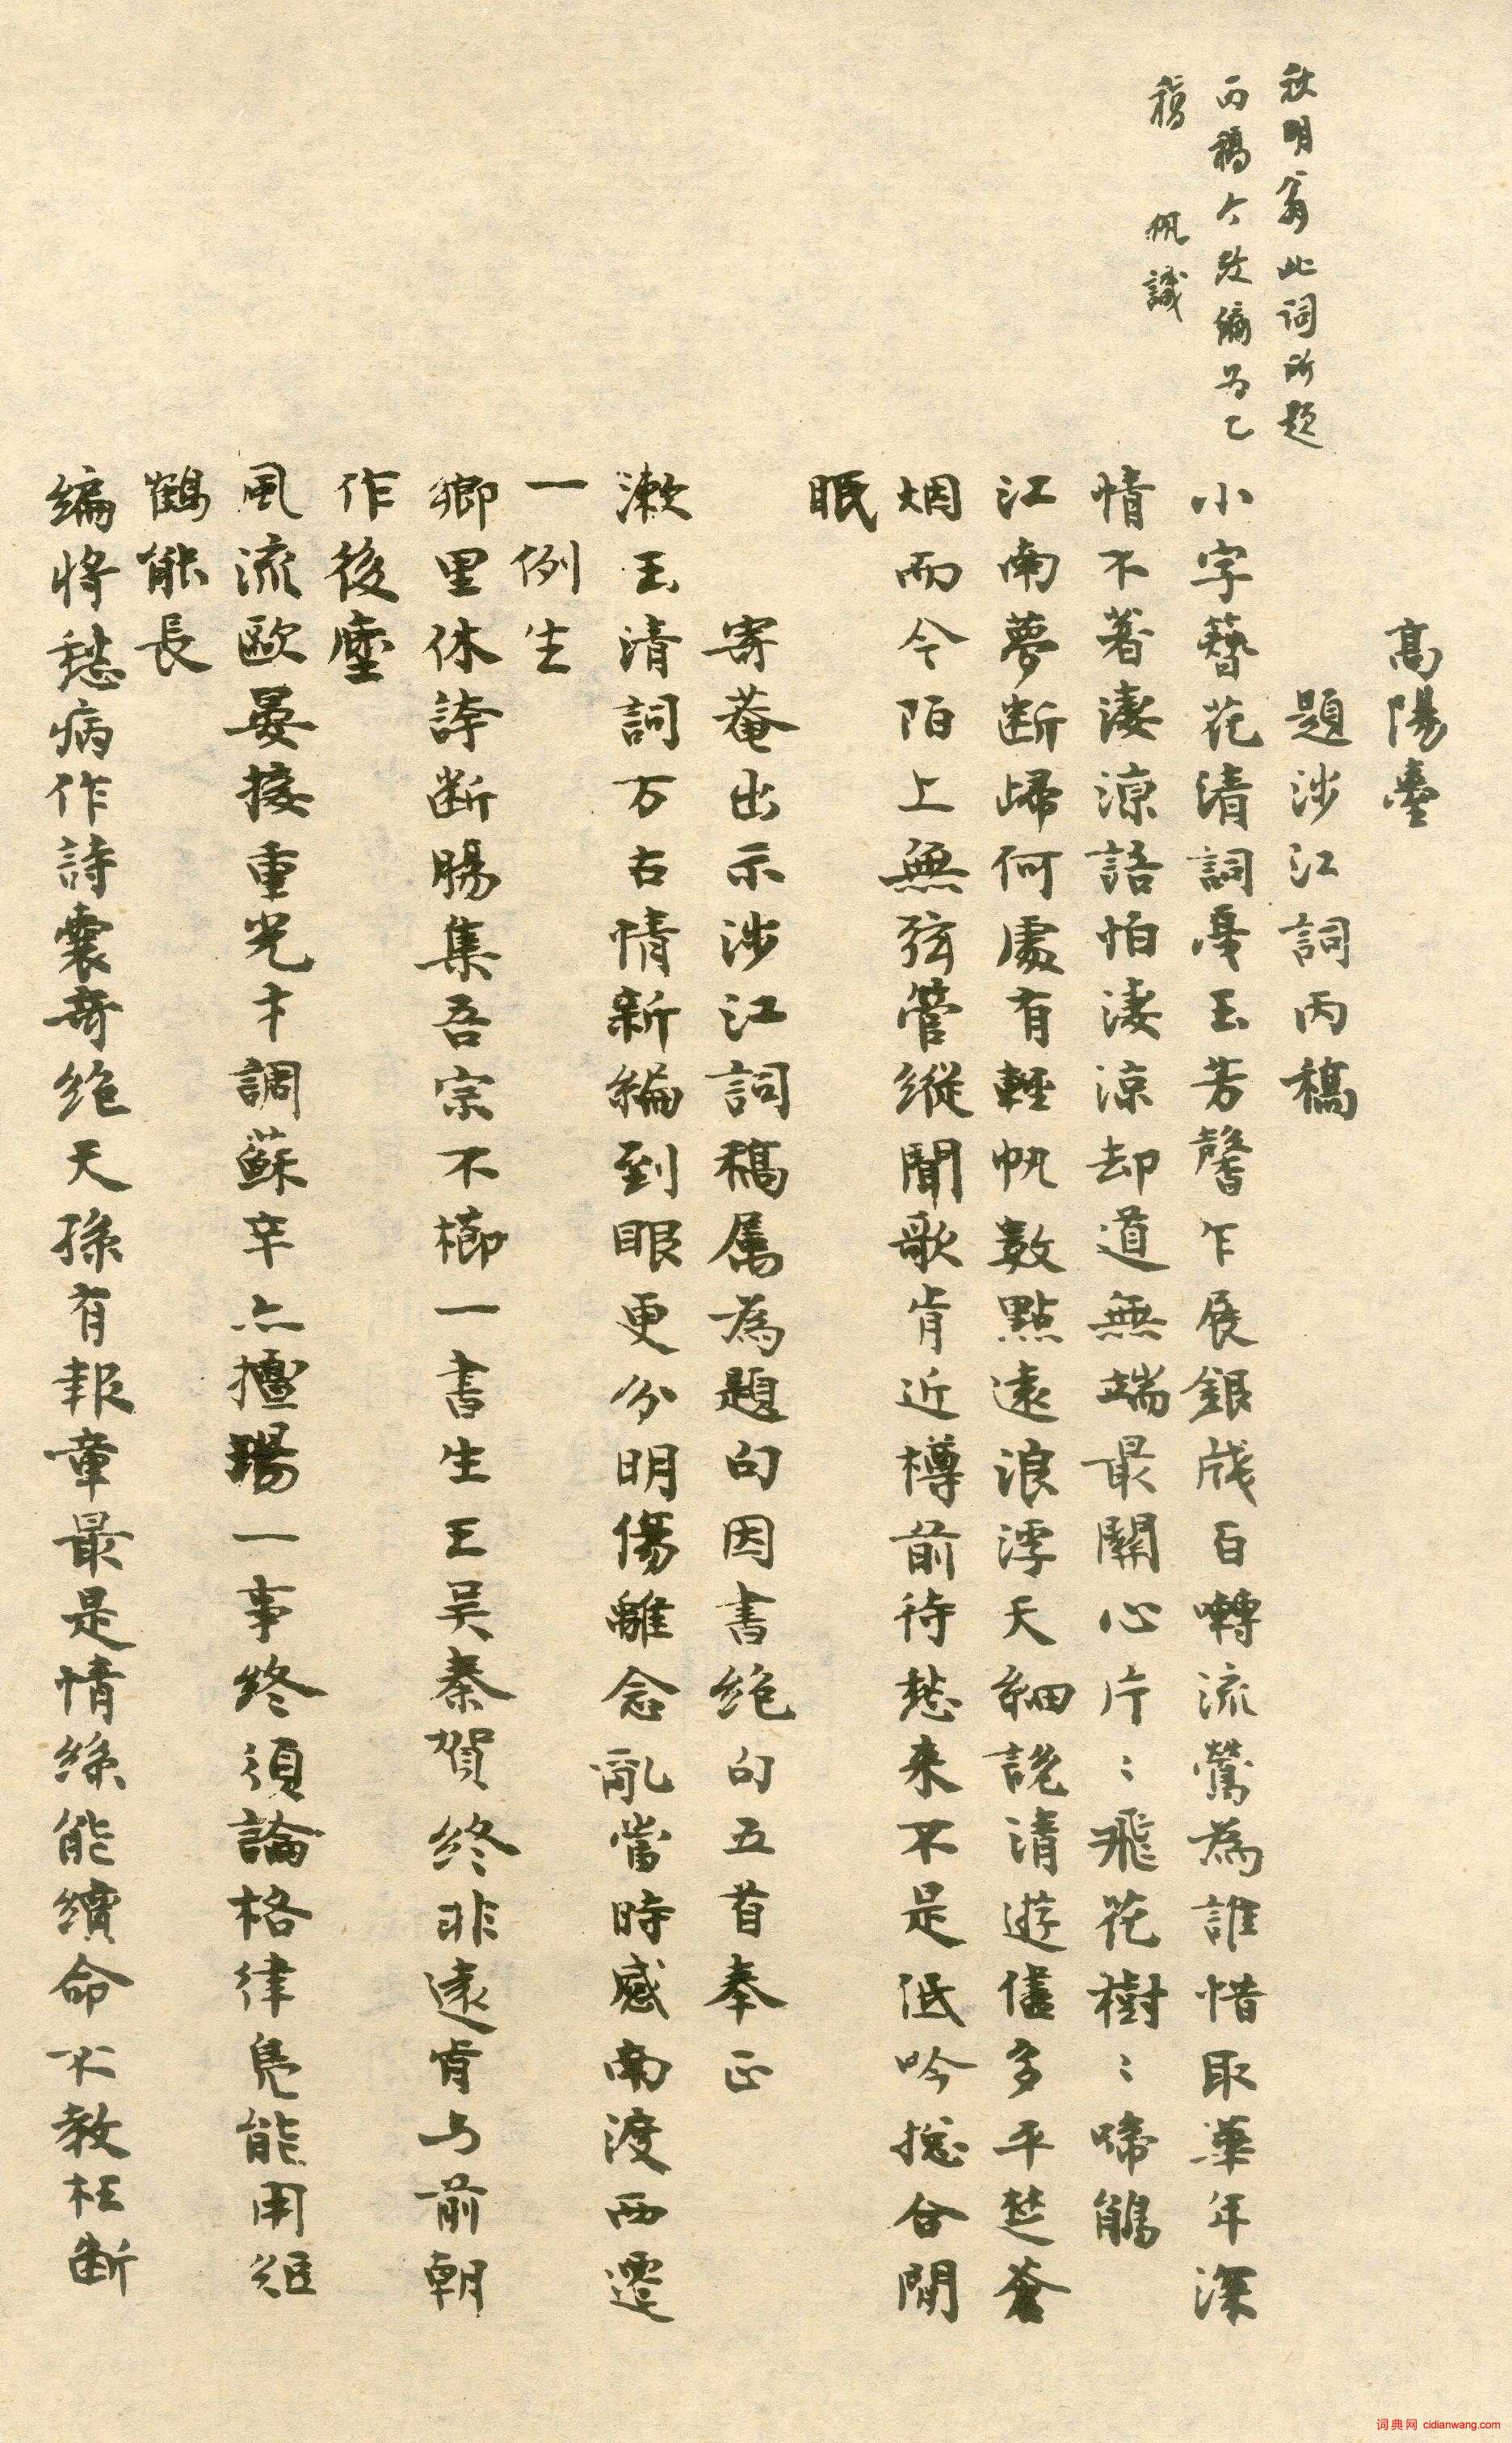 秋明翁此詞所題
丙稿今改編為乙
稿 帆識
高陽臺
題涉江詞丙稿
小字簪花清詞戛玉芳馨乍展銀牋百囀流鶯為誰惜取華年深
情不著淒涼語怕淒涼却道無端最關心片〻飛花樹〻啼鵑
江南夢断歸何處有輕帆數點遠浪浮天細說清遊儘多平楚蒼
烟而今陌上無弦管縱聞歌肯近樽前待愁来不是低吟揔合閒
眠
寄菴出示涉江詞稿属為題句因書絶句五首奉正
漱玉清詞万古情新編到眼更分明傷離念亂當時感南渡西遷
一例生
鄉里休誇断腸集吾宗不櫛一書生王吴秦賀終非遠肯与前朝
作後塵
風流歐晏接重光才調蘇辛亦擅場一事終須論格律鳧能用短
鶴能長
编將愁病作詩囊奇絶天孫有報章最是情絲能續命不教枉断
词典网 cidianwang.com